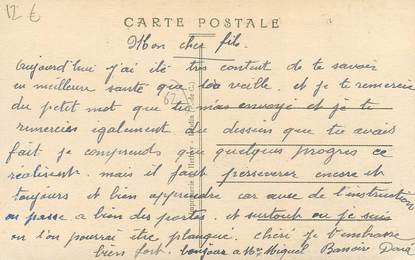 12 €
CARTE POSTALE
Mon cher fils.
Aujourd'hui j'ai été très content de te savoir
en meilleure santé que la veille. et je te remercie
du petit mot que tu m'as envoyé et je te
remercies egalement du dessien que tu avais
fait je comprends que quelques progres ce
realisent. mais il faut perseverer encore et
toujours et bien apprendre car avec de l'instruction
on passe a bien des portes. et surtout ou je suis
on l'on pourrai être planqué. cheri je t'embrasse
bien fort. bonjour a Miguel